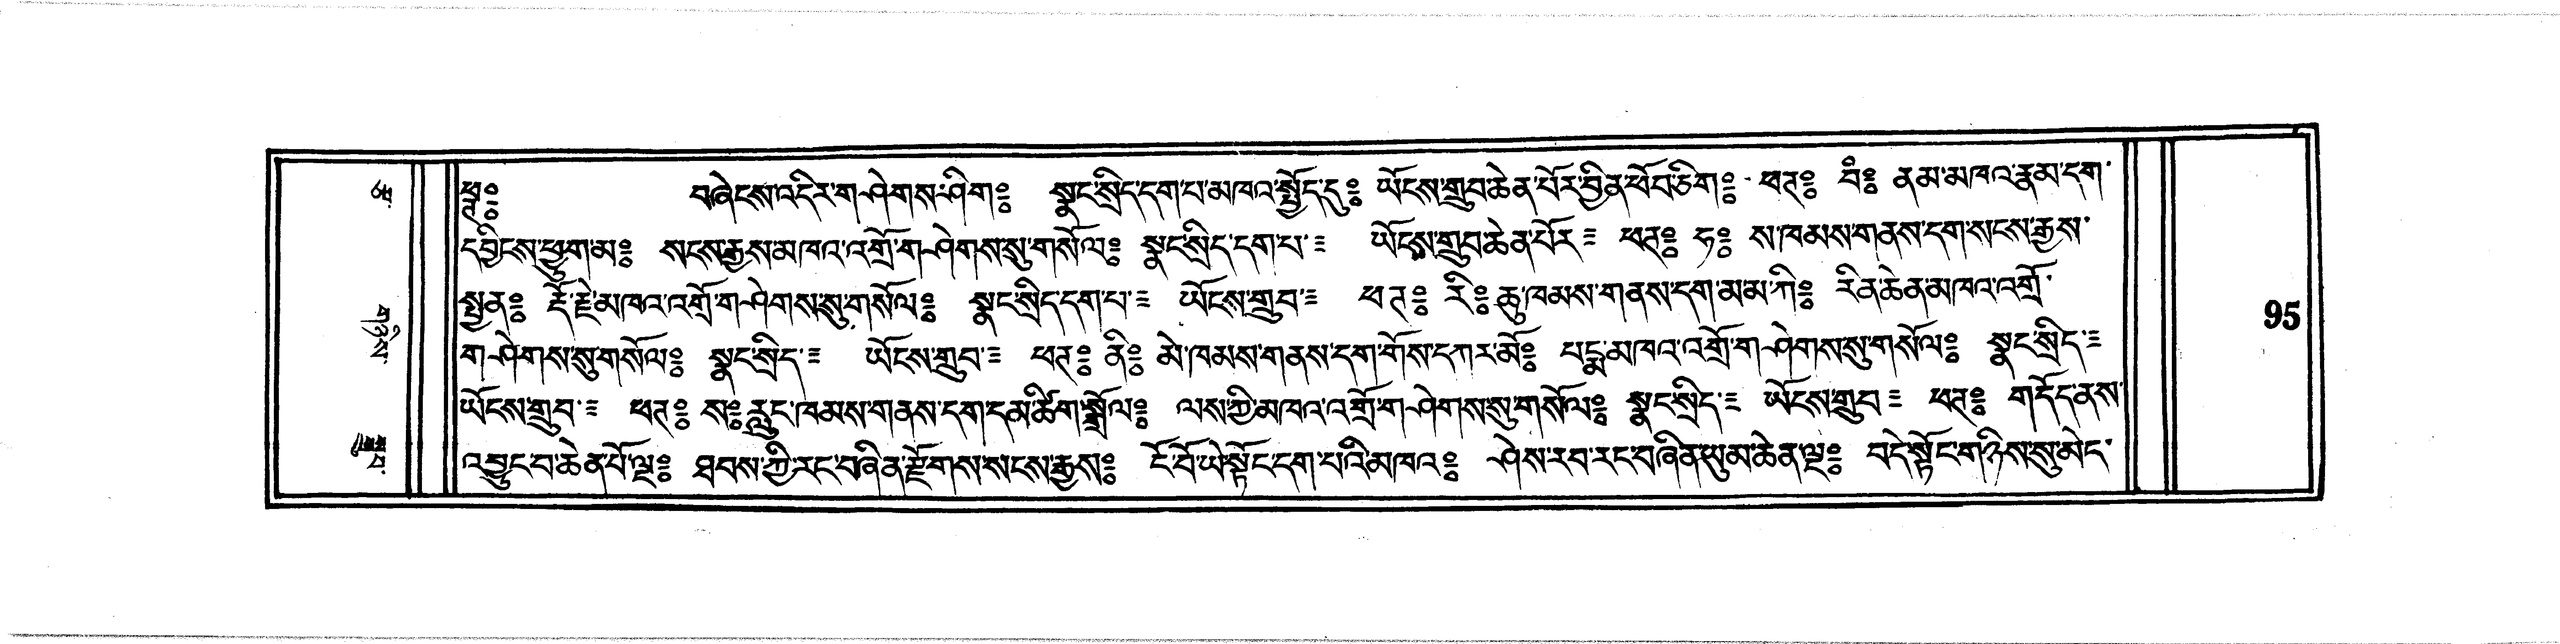 ཕཊ༔ བཞེངས་འདིར་གཤེགས་ཤིག༔ སྣང་སྲིད་དག་པ་མཁའ་སྤྱོད་དུ༔ ཡོངས་གྲུབ་ཆེན་པོར་བྱིན་ཕོབ་ཅིག༔ ཕཊ༔ བཾ༔ ནམ་མཁའ་རྣམ་དག་
དབྱིངས་ཕྱུག་མ༔ སངས་རྒྱས་མཁའ་འགྲོ་གཤེགས་སུ་གསོལ༔ སྣང་སྲིད་དག་པ་༴ ཡོངས་གྲུབ་ཆེན་པོར༴ ཕཊ༔ ཧ༔ ས་ཁམས་གནས་དག་སངས་རྒྱས་
སྤྱན༔ རྡོ་རྗེ་མཁའ་འགྲོ་གཤེགས་སུ་གསོལ༔ སྣང་སྲིད་དག་པ་༴ ཡོངས་གྲུབ་༴ ཕཊ༔ རི༔ ཆུ་ཁམས་གནས་དག་མ་མ་ཀི༔ རིན་ཆེན་མཁའ་འགྲོ་
གཤེགས་སུ་གསོལ༔ སྣང་སྲིད་༴ ཡོངས་གྲུབ་༴ ཕཊ༔ ནི༔ མེ་ཁམས་གནས་དག་གོས་དཀར་མོ༔ པདྨ་མཁའ་འགྲོ་གཤེགས་སུ་གསོལ༔ སྣང་སྲིད་༴
ཡོངས་གྲུབ་༴ ཕཊ༔ ས༔ རླུང་ཁམས་གནས་དག་དམ་ཚིག་སྒྲོལ༔ ལས་ཀྱི་མཁའ་འགྲོ་གཤེགས་སུ་གསོལ༔ སྣང་སྲིད་༴ ཡོངས་གྲུབ༴ ཕཊ༔ གདོད་ནས་
འབྱུང་བ་ཆེན་པོ་ལྔ༔ ཐབས་ཀྱི་རང་བཞིན་རྫོགས་སངས་རྒྱས༔ ངོ་བོ་ཡེ་སྟོང་དག་པའི་མཁའ༔ ཤེས་རབ་རང་བཞིན་ཡུམ་ཆེན་ལྔ༔ བདེ་སྟོང་གཉིས་སུ་མེད་
95